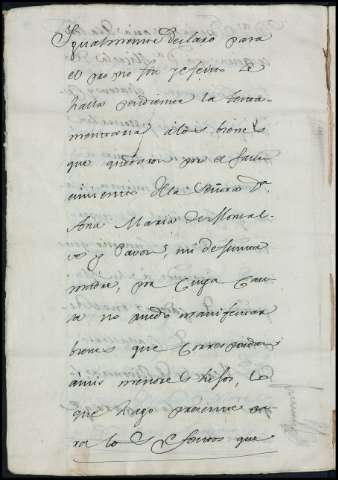 Igualmente declaro para
el propio fin y efecto se
halla pendiente la testa
mentaria álos bienes
que quedaron por el falle
cimiento dela Señora Dª
Ana Maria de Montal
vo y Pavon, mi difunta
madre, por cuya cau
sa no puedo manifestar
bienes que correspondan
amis menores hijos, lo
que hago presente pa
ra los efectos que